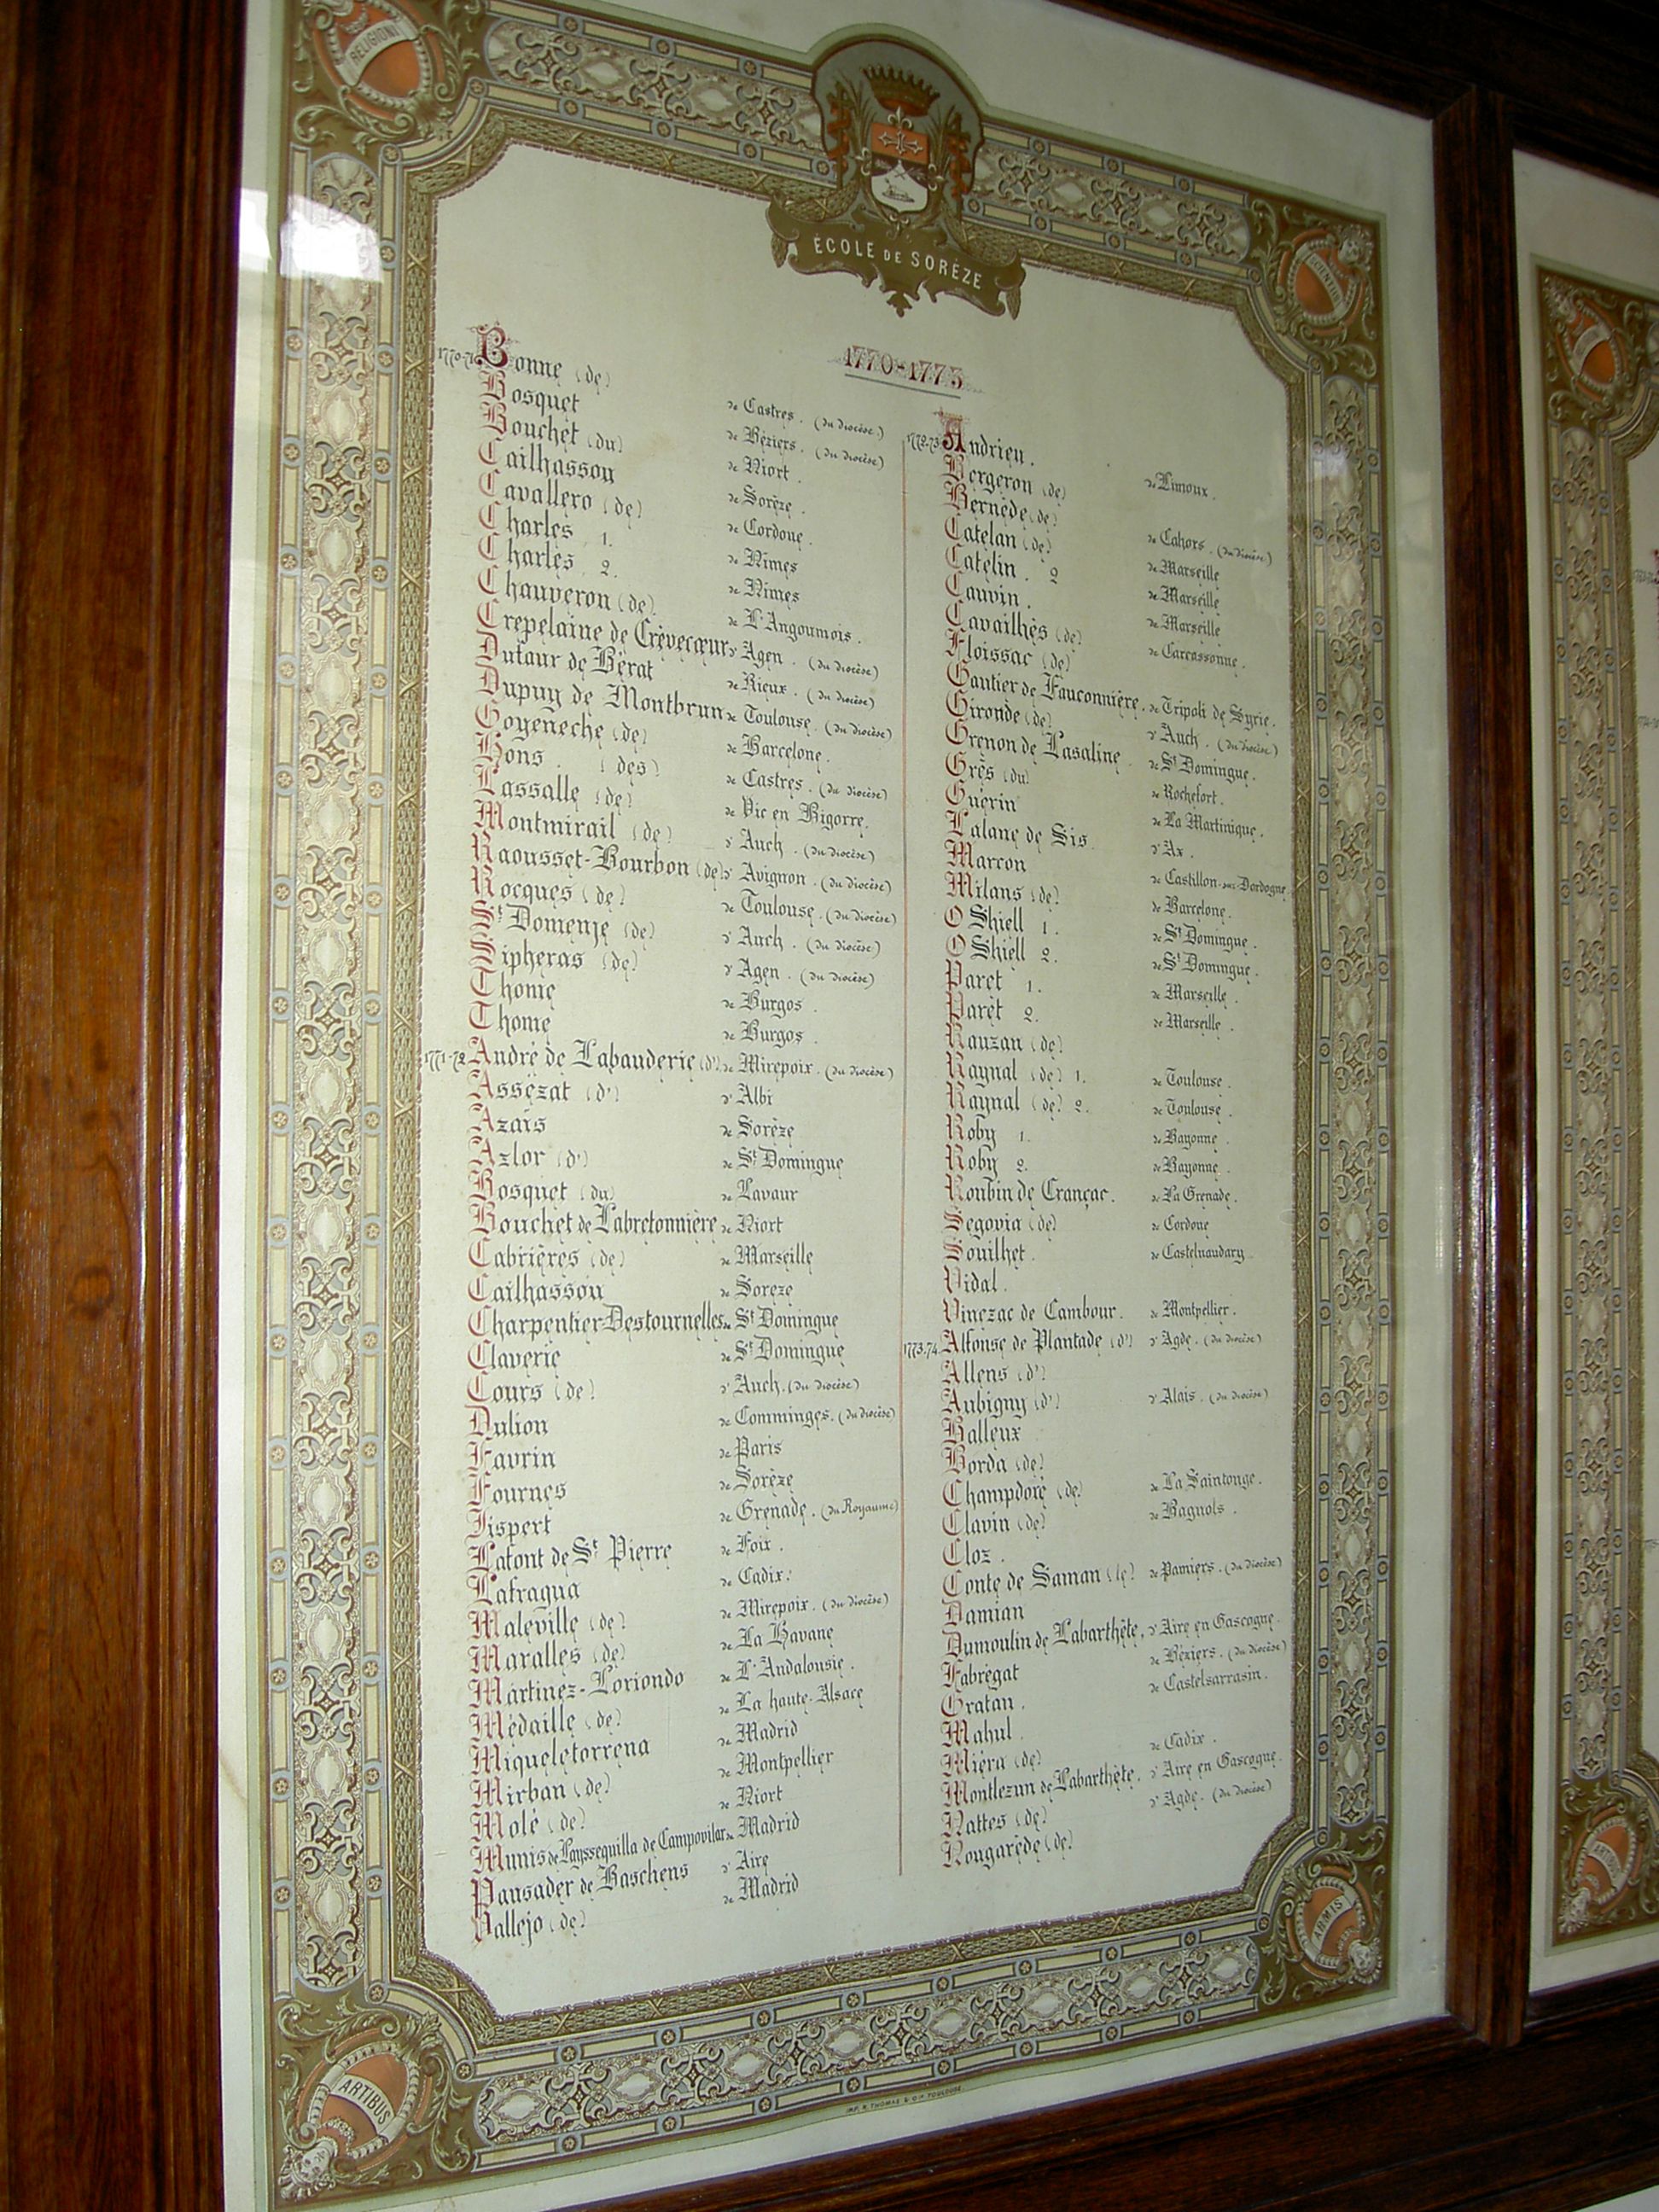 RELIGIONI
SCIENTIIS
ÉCOLE DE SORÈZE
1770-1775
1770-71 Bonne (de) de Castres. (du diocèse)
Bosquet de Béziers. (du diocèse)
Bouchet (du) de Niort.
Cailhassou de Sorèze.
Cavallero (de) de Cordoue.
Charles 1. de Nimes
Charles 2. de Nimes
Chauveron (de) de L'Angoumois.
Crepelaine de Crèvecœur d'Agen. (du diocèse)
Dufaur de Bérat de Rieux. (du diocèse)
Dupuy de Montbrun de Toulouse. (du diocèse)
Goyeneche (de) de Barcelone.
Hons. (des) de Castres. (du diocèse)
Lassalle (de) de Vic en Bigorre.
Montmirail (de) d'Auch. (du diocèse)
Raousset-Bourbon (de) d'Avignon. (du diocèse)
Rocques (de) de Toulouse. (du diocèse)
St Domenje (de) d'Auch. (du diocèse)
Sipheras (de) d'Agen. (du diocèse)
Thome de Burgos.
Thome de Burgos.
1771-72 André de Labauderie (d') de Mirepoix. (du diocèse)
Assézat (d') d'Albi
Azaïs de Sorèze
Azlor (d') de St Domingue
Bosquet (du) de Lavaur
Bouchet de Labretonnière de Niort
Cabrières (de) de Marseille
Cailhassou de Sorèze
Charpentier-Destournelles de St Domingue
Claverie de St Domingue
Cours (de) d'Auch. (du diocèse)
Dulion de Comminges. (du diocèse)
Favrin de Paris
Fournes de Sorèze
Jispert de Grenade. (du Royaume)
Lafont de St Pierre de Foix.
Lafragua de Cadix.
Maleville (de) de Mirepoix. (du diocèse)
Maralles (de) de La Havane
Martinez-Loriondo de L'Andalousie.
Médaille (de) de La haute-Alsace
Miqueletorrena de Madrid
Mirban (de) de Montpellier
Molé (de) de Niort
Munis de Layssequilla de Campovilar de Madrid
Pausader de Baschens d'Aire
Vallejo (de) de Madrid
1772-73 Andrieu. de Limoux.
Bergeron (de)
Bernède (de) de Cahors. (du diocèse)
Catelan (de) de Marseille
Catelin. 2 de Marseille
Cauvin. de Marseille
Cavailhès (de) de Carcassonne.
Floissac (de)
Gautier de Fauconnière. de Tripoli de Syrie.
Gironde (de) d'Auch. (du diocèse)
Grenon de Lasaline. de St Domingue.
Grès (du) de Rochefort.
Guerin de La Martinique.
Lalane de Sis d'Ax.
Marcon de Castillon-sur-Dordogne
Milans (de) de Barcelone.
O Shiell 1. de St Domingue.
O Shiell 2. de St Domingue.
Paret 1. de Marseille.
Paret 2. de Marseille.
Rauzan (de)
Raynal (de) 1. de Toulouse.
Raynal (de) 2. de Toulouse.
Roby 1. de Bayonne.
Roby 2. de Bayonne.
Roubin de Crançac. de La Grenade.
Segovia (de) de Cordoue
Souilhet. de Castelnaudary
Vidal.
Vinezac de Cambour. de Montpellier.
1773-74 Alfonse de Plantade (d') d'Agde. (du diocèse)
Allens (d')
Aubigny (d') d'Alais. (du diocèse)
Balleux
Borda (de)
Champdoré (de) de La Saintonge.
Clavin (de) de Bagnols.
Cloz.
Conte de Saman (le) de Pamiers. (du diocèse)
Damian
Dumoulin de Labarthète. d'Aire en Gascogne.
Fabrégat de Béziers. (du diocèse)
Gratan. de Castelsarrasin.
Mahul.
Miéra (de) de Cadix.
Montlezun de Labarthète. d'Aire en Gascogne.
Nattes (de) d'Agde. (du diocèse)
Nougarède (de)
ARTIBUS
ARMIS
IMP. R. THOMAS & Cie TOULOUSE
ARTIBUS